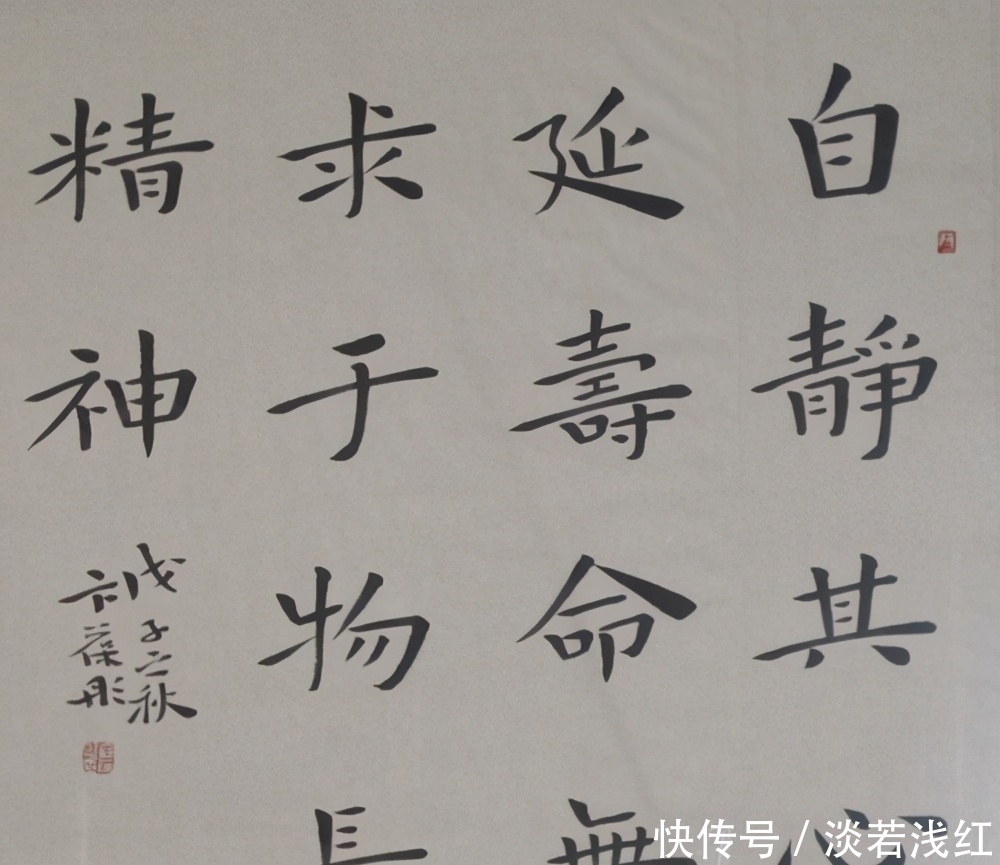 自靜其
延壽命無
求于物長
精神
戊子之秋
卞葆彤
快传号 / 淡若浅红